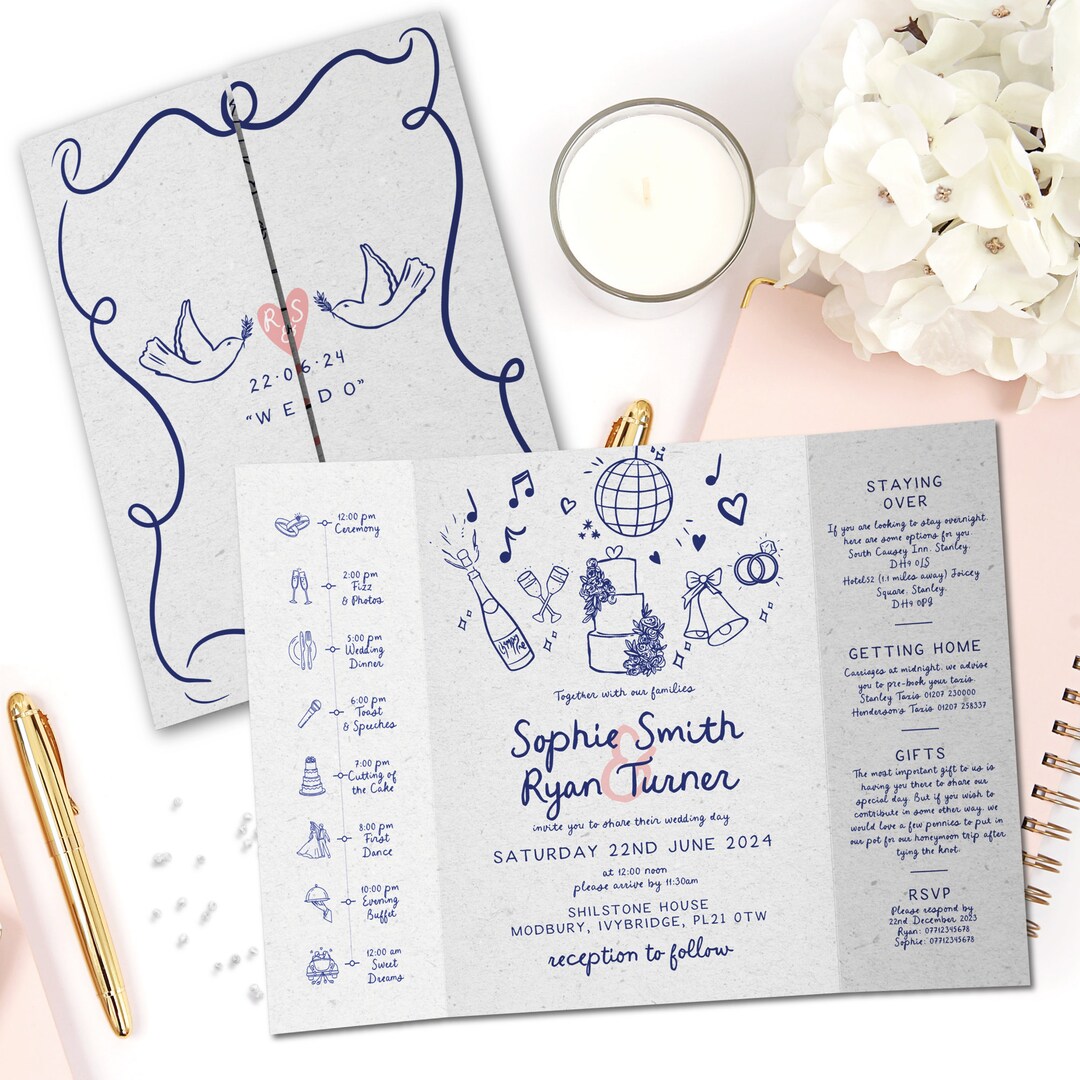 R S
&
22·06·24
"WE DO"
12:00 pm
Ceremony
2:00 pm
Fizz
& Photos
5:00 pm
Wedding
Dinner
6:00 pm
Toast
& Speeches
7:00 pm
Cutting of
the Cake
8:00 pm
First
Dance
10:00 pm
Evening
Buffet
12:00 am
Sweet
Dreams
Together with our families
Sophie Smith
&
Ryan Turner
invite you to share their wedding day
SATURDAY 22ND JUNE 2024
at 12:00 noon
please arrive by 11:30am
SHILSTONE HOUSE
MODBURY, IVYBRIDGE, PL21 0TW
reception to follow
STAYING
OVER
If you are looking to stay overnight,
here are some options for you
South Causey Inn, Stanley,
DH9 0LS
Hotel52 (1.1 miles away) Joicey
Square, Stanley,
DH9 0PG
GETTING HOME
Carriages at midnight, we advise
you to pre-book your taxis.
Stanley Taxis 01207 230000
Henderson's Taxis 01207 258337
GIFTS
The most important gift to us is
having you there to share our
special day. But if you wish to
contribute in some other way, we
would love a few pennies to put in
our pot for our honeymoon trip after
tying the knot.
RSVP
Please respond by
22nd December 2023
Ryan: 07712345678
Sophie: 07712345678